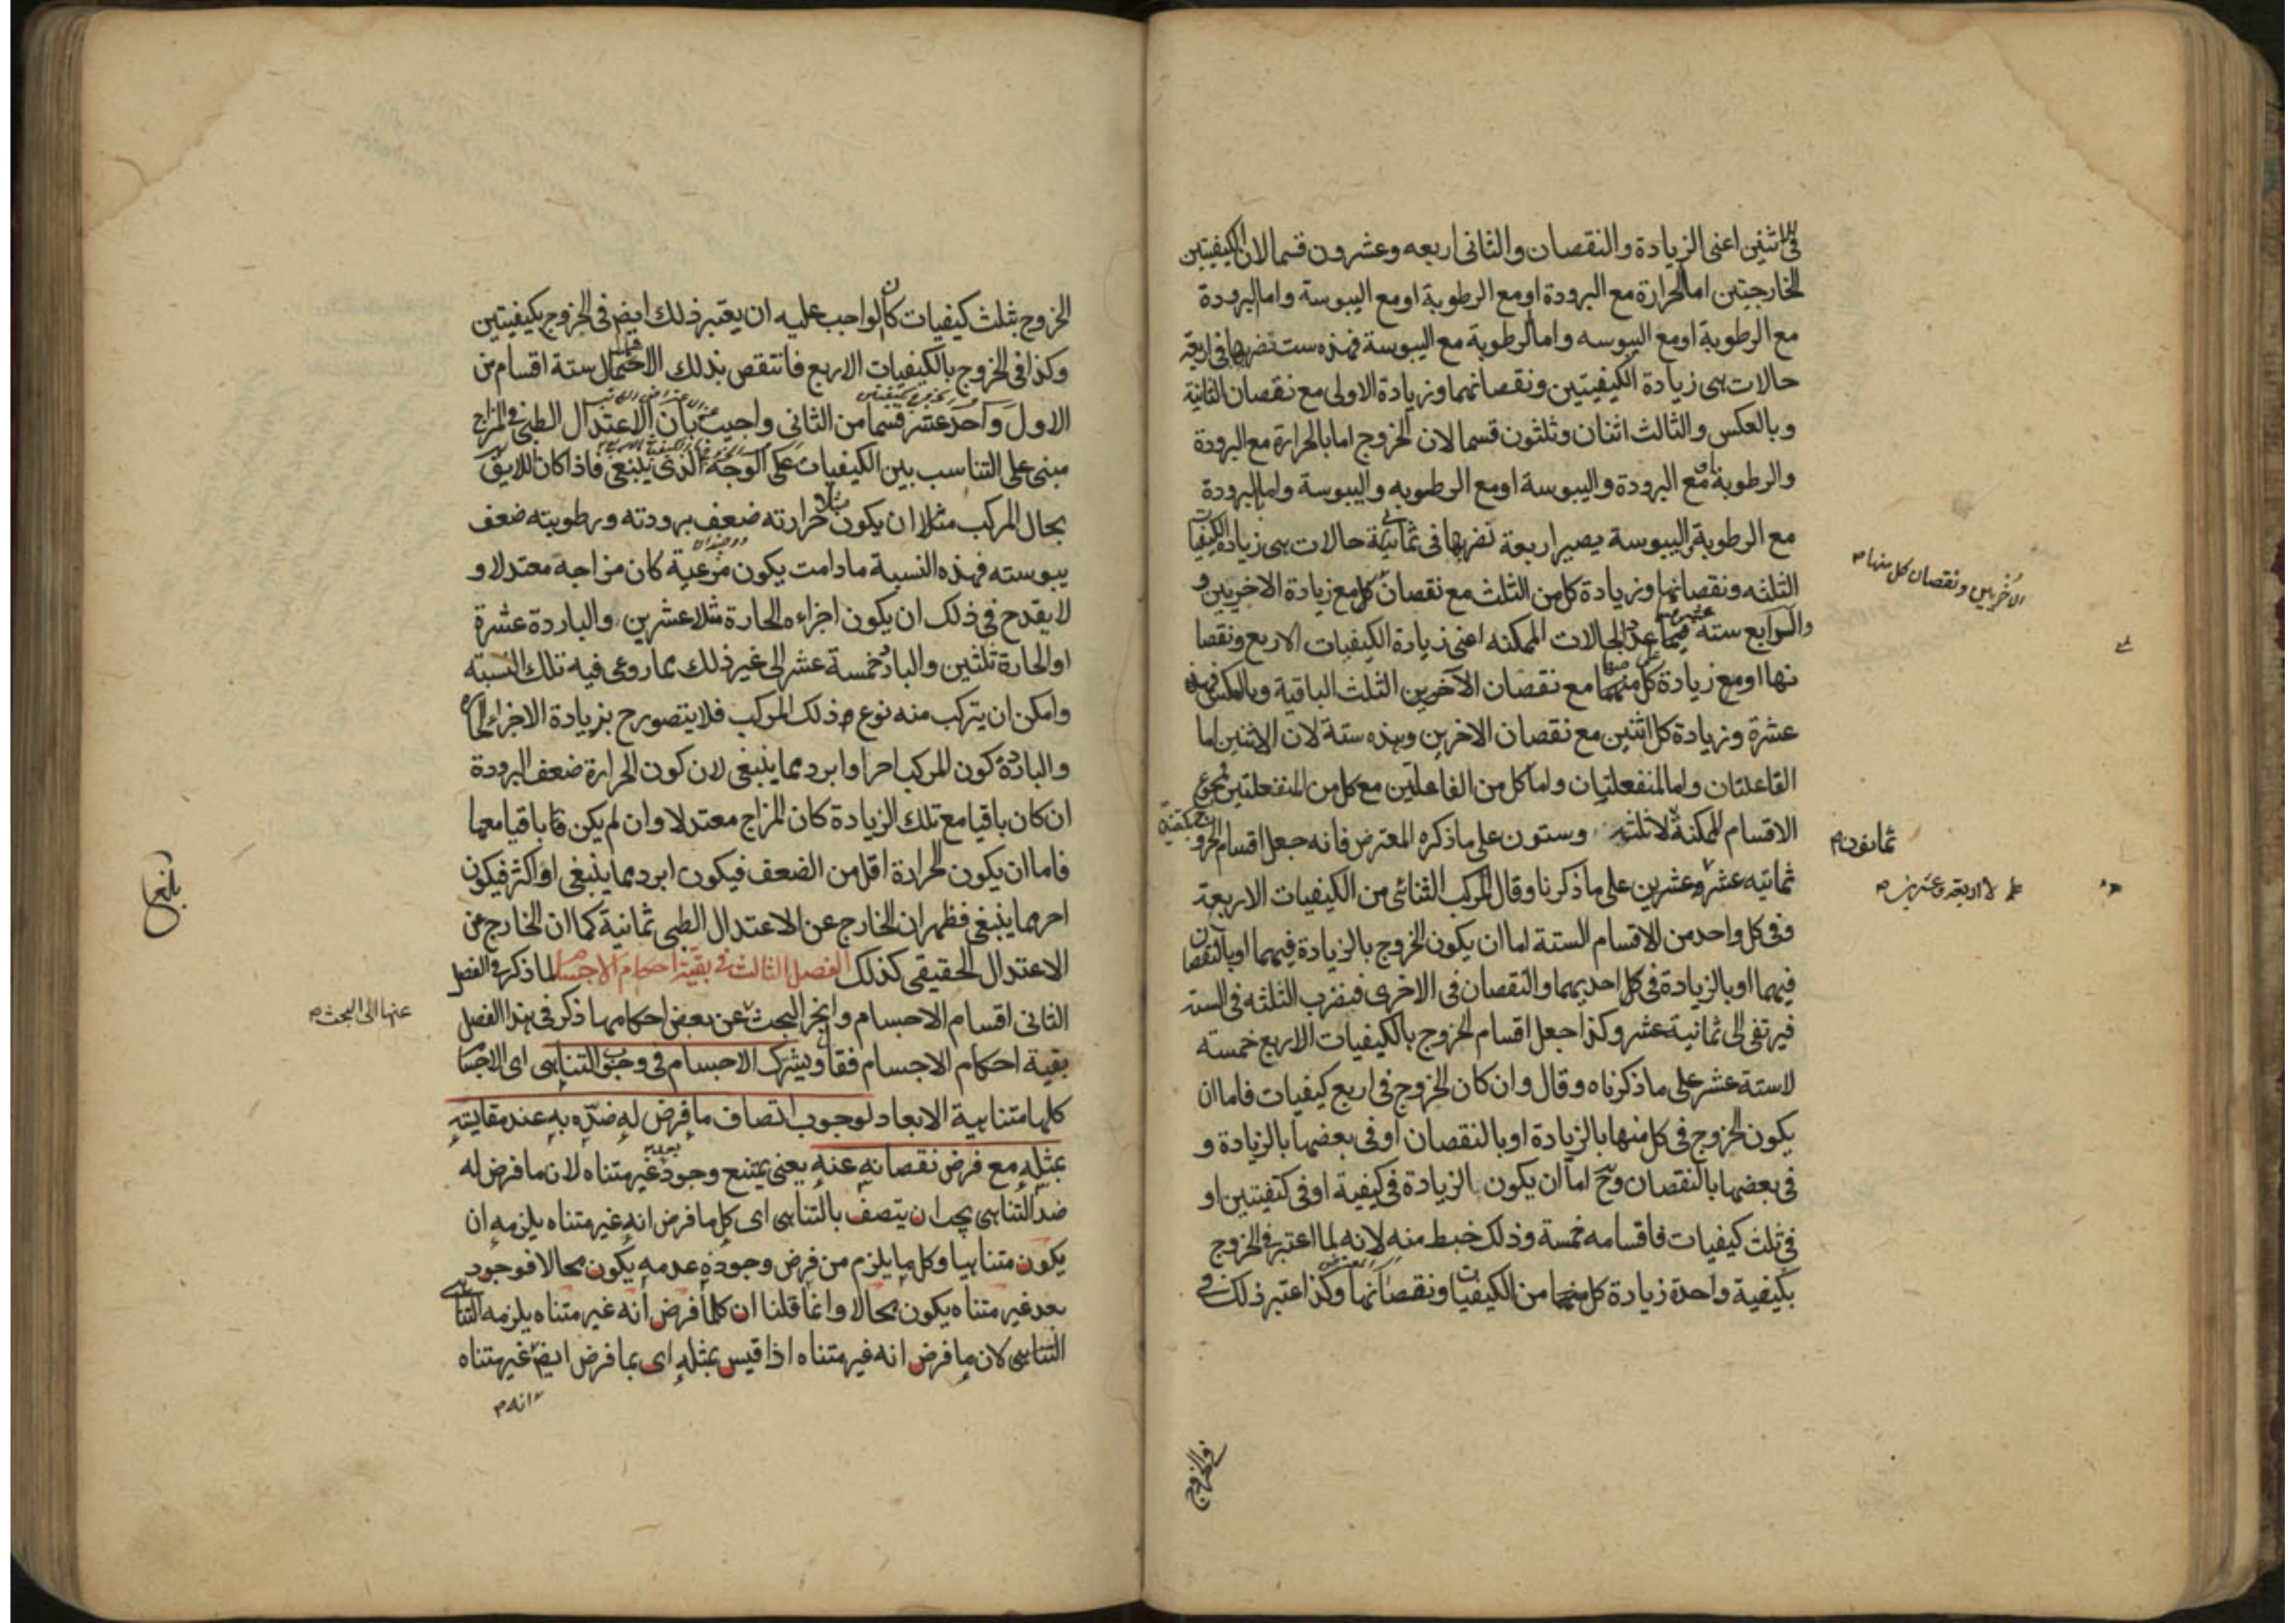 في اثنين اعنى الزيادة والنقصان والثانى اربعه وعشرون قسما لان الكيفيتين
الخارجتين اما الحرارة مع البرودة او مع الرطوبة او مع اليبوسة واما البرودة
مع الرطوبة او مع اليبوسه واما الرطوبة مع اليبوسة فهذه ست نضربها فى اربعة
حالات هى زيادة الكيفيتين ونقصانهما وزيادة الاولى مع نقصان الثانية
وبالعكس والثالث اثنان وثلثون قسما لان الخروج اما بالحرارة مع البرودة
والرطوبة او مع البرودة واليبوسة او مع الرطوبه واليبوسة واما بالبرودة
مع الرطوبة واليبوسة يصير اربعة نضربها فى ثمانية حالات هى زيادة الكيفيات
الثلثه ونقصانها وزيادة كل من الثلث مع نقصان كل مع زيادة الاخريين و
الاخريين ونقصان كل منها
والرابع ستة عشر عدد الحالات الممكنه اعنى زيادة الكيفيات الاربع ونقصا
نها او مع زيادة كل منها مع نقصان الآخرين الثلث الباقية وبالعكس فهذه
عشرة وزيادة كل اثنين مع نقصان الاخرين وهذه ستة لان الاثنين اما
الفاعلتان واما المنفعلتان واما كل من الفاعلتين مع كل من المنفعلتين فمجموع
الاقسام الممكنة ثمانون لا ثلثه وستون على ما ذكره المعترض فانه جعل اقسام الخروج بكيفيتين
ثمانيه عشر لا اربعة وعشرين على ما ذكرنا وقال المركب الثنائى من الكيفيات الاربعة
ففى كل واحد من الاقسام الستة اما ان يكون الخروج بالزيادة فيهما او بالنقصان
فيهما او بالزيادة فى كل احديهما والنقصان فى الاخرى فنضرب الثلثه فى الستة
فيرتقى الى ثمانية عشر وكذا جعل اقسام الخروج بالكيفيات الاربع خمسته
لا ستة عشر على ما ذكرناه وقال وان كان الخروج فى اربع كيفيات فاما ان
يكون الخروج فى كل منها بالزيادة او بالنقصان او فى بعضها بالزيادة و
فى بعضها بالنقصان وح اما ان يكون بالزيادة فى كيفية او فى كيفيتين او
فى ثلث كيفيات فاقسامه خمسة وذلك خبط منه لانه لما اعتبر فى الخروج
بكيفية واحدة زيادة كل منها من الكيفيات ونقصانها وكذا اعتبر ذلك فى
الخروج بثلث كيفيات كان الواجب عليه ان يعتبر ذلك ايض فى الخروج بكيفيتين
وكذا فى الخروج بالكيفيات الاربع فانتقص بذلك الاحتمال ستة اقسام من
الاول واحد عشر قسما من الثانى واجيب بان الاعتدال الطبى فى المزاج
مبنى على التناسب بين الكيفيات على الوجه الذى ينبغى فاذا كان اللايق
بحال المركب مثلا ان يكون حرارته ضعف برودته ورطوبته ضعف
يبوسته فهذه النسبة ما دامت يكون مرعية كان مزاجه معتدلا و
لا يقدح فى ذلك ان يكون اجزاءه الحارة مثلا عشرين والباردة عشرة
او الحارة ثلثين والبارد خمسة عشر الى غير ذلك بما روعى فيه تلك النسبته
وامكن ان يتركب منه نوع ذلك المركب فلا يتصور ح بزيادة الاجزاء الحارة
والباردة كون المركب احر او ابرد مما ينبغى لان كون الحرارة ضعف البرودة
ان كان باقيا مع تلك الزيادة كان المزاج معتدلا وان لم يكن باقيا معها
فاما ان يكون الحرارة اقل من الضعف فيكون ابرد مما ينبغى او اكثر فيكون
احر مما ينبغى فظهر ان الخارج عن الاعتدال الطبى ثمانية كما ان الخارج من
الاعتدال الحقيقى كذلك الفصل الثالث فى بقية احكام الاجسام لما ذكر فى الفصل
الثانى اقسام الاجسام وانجر البحث عن بعض احكامها ذكر فى هذا الفصل
عنها الى البحث
بقية احكام الاجسام فقال ويشترك الاجسام فى وجوب التناهى اى الاجسام
كلها متناهية الابعاد لوجوب اتصاف ما فرض له ضده به عند مقايسته
بمثله مع فرض نقصانه عنه يعنى يمتنع وجود بعد غير متناه لان ما فرض له
ضد التناهى يجب ان يتصف بالتناهى اى كل ما فرض انه غير متناه يلزمه ان
يكون متناهيا وكل ما يلزم من فرض وجوده عدمه يكون محالا فوجود
بعد غير متناه يكون محالا وانما قلنا ان كلما فرض انه غير متناه يلزمه التناهى
التناهى لان ما فرض انه غير متناه اذا قيس بمثله اى بما فرض ايض غير متناه
انه
بلغ